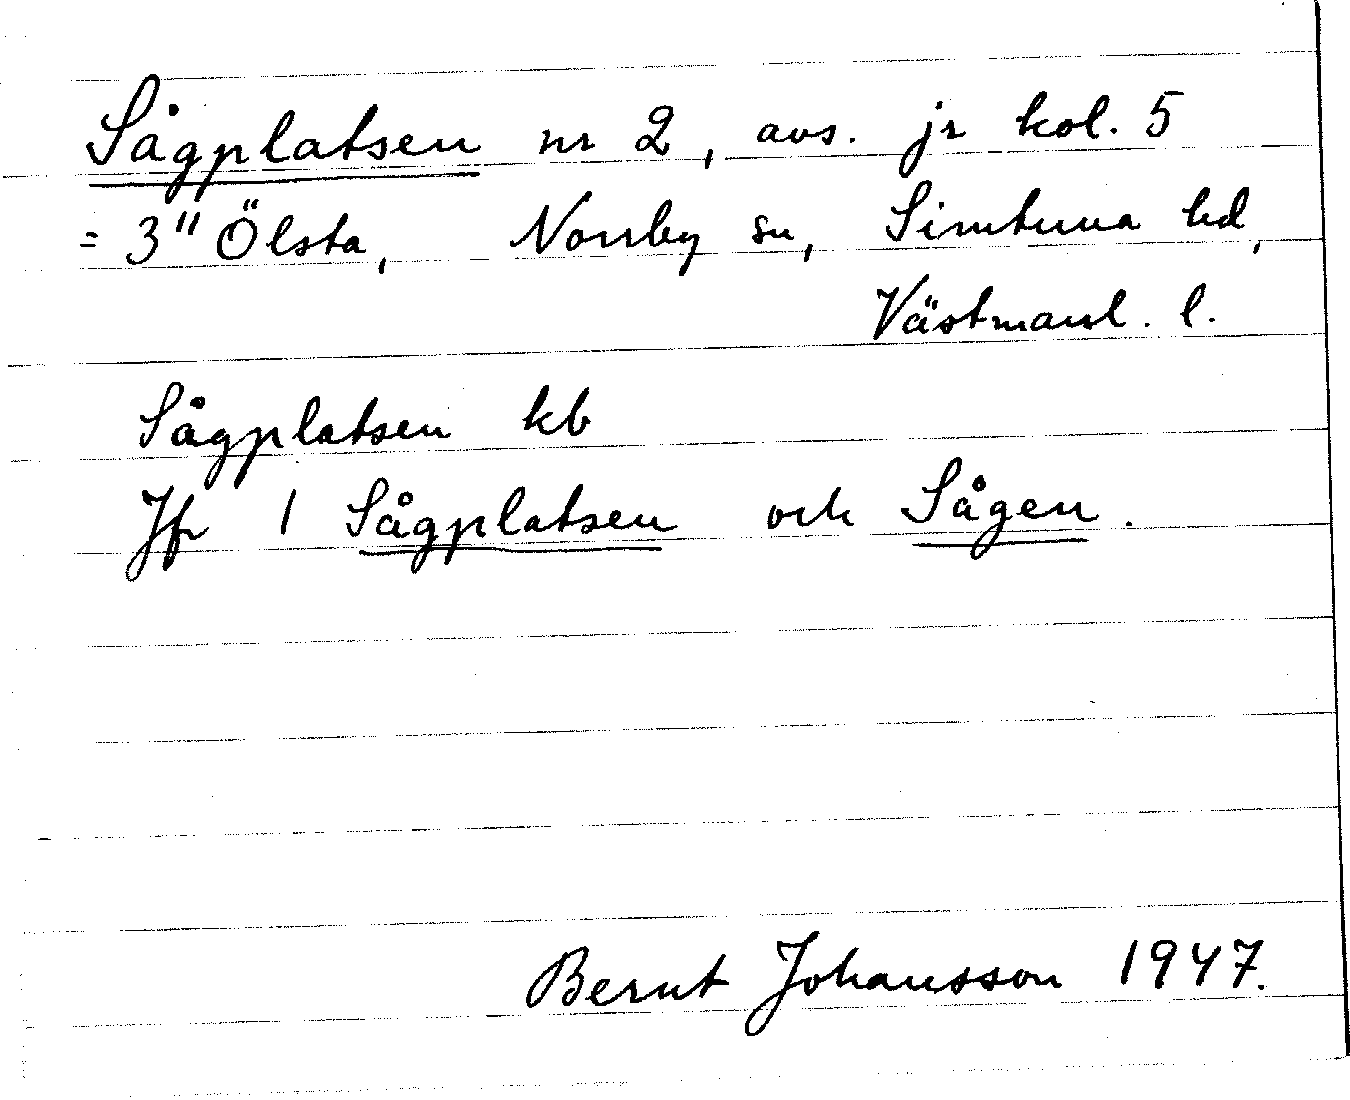 Sågplatsen nr 2, avs. jr kol. 5
= 3" Ölsta, Norrby sn, Simtuna hd,
Västmanl. l.
Sågplatsen kb
Jfr 1 Sågplatsen och Sågen.
Bernt Johansson 1947.